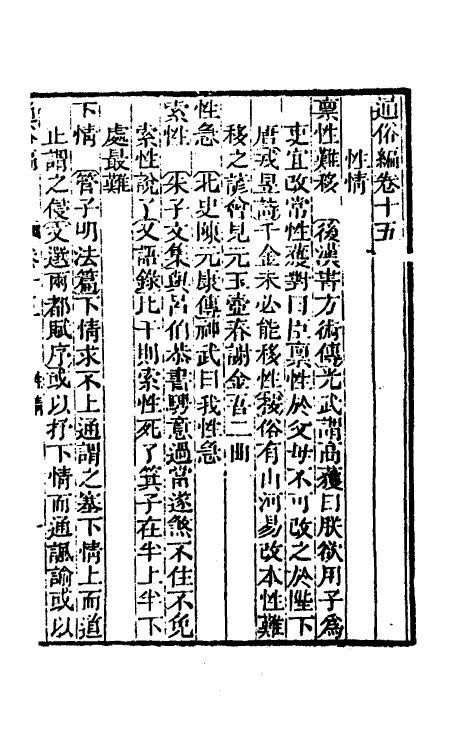 通俗編卷十五
性情
稟性難移　後漢書方術傳光武謂高獲曰朕欲用子爲
吏宜改常性獲對曰臣稟性於父母不可改之於陛下
唐戎昱詩千金未必能移性移俗有山河易改本性難
移之諺曾見元玉壺春謝金吾二曲
性急　北史陳元康傳神武曰我性急
索性　朱子文集與呂伯恭書騁意過當遂煞不住不免
索性說了又語錄比干則索性死了箕子在半上半下
處最難
下情　管子明法篇下情求不上通謂之塞下情上而道
止謂之侵文選兩都賦序或以抒下情而通諷諭或以